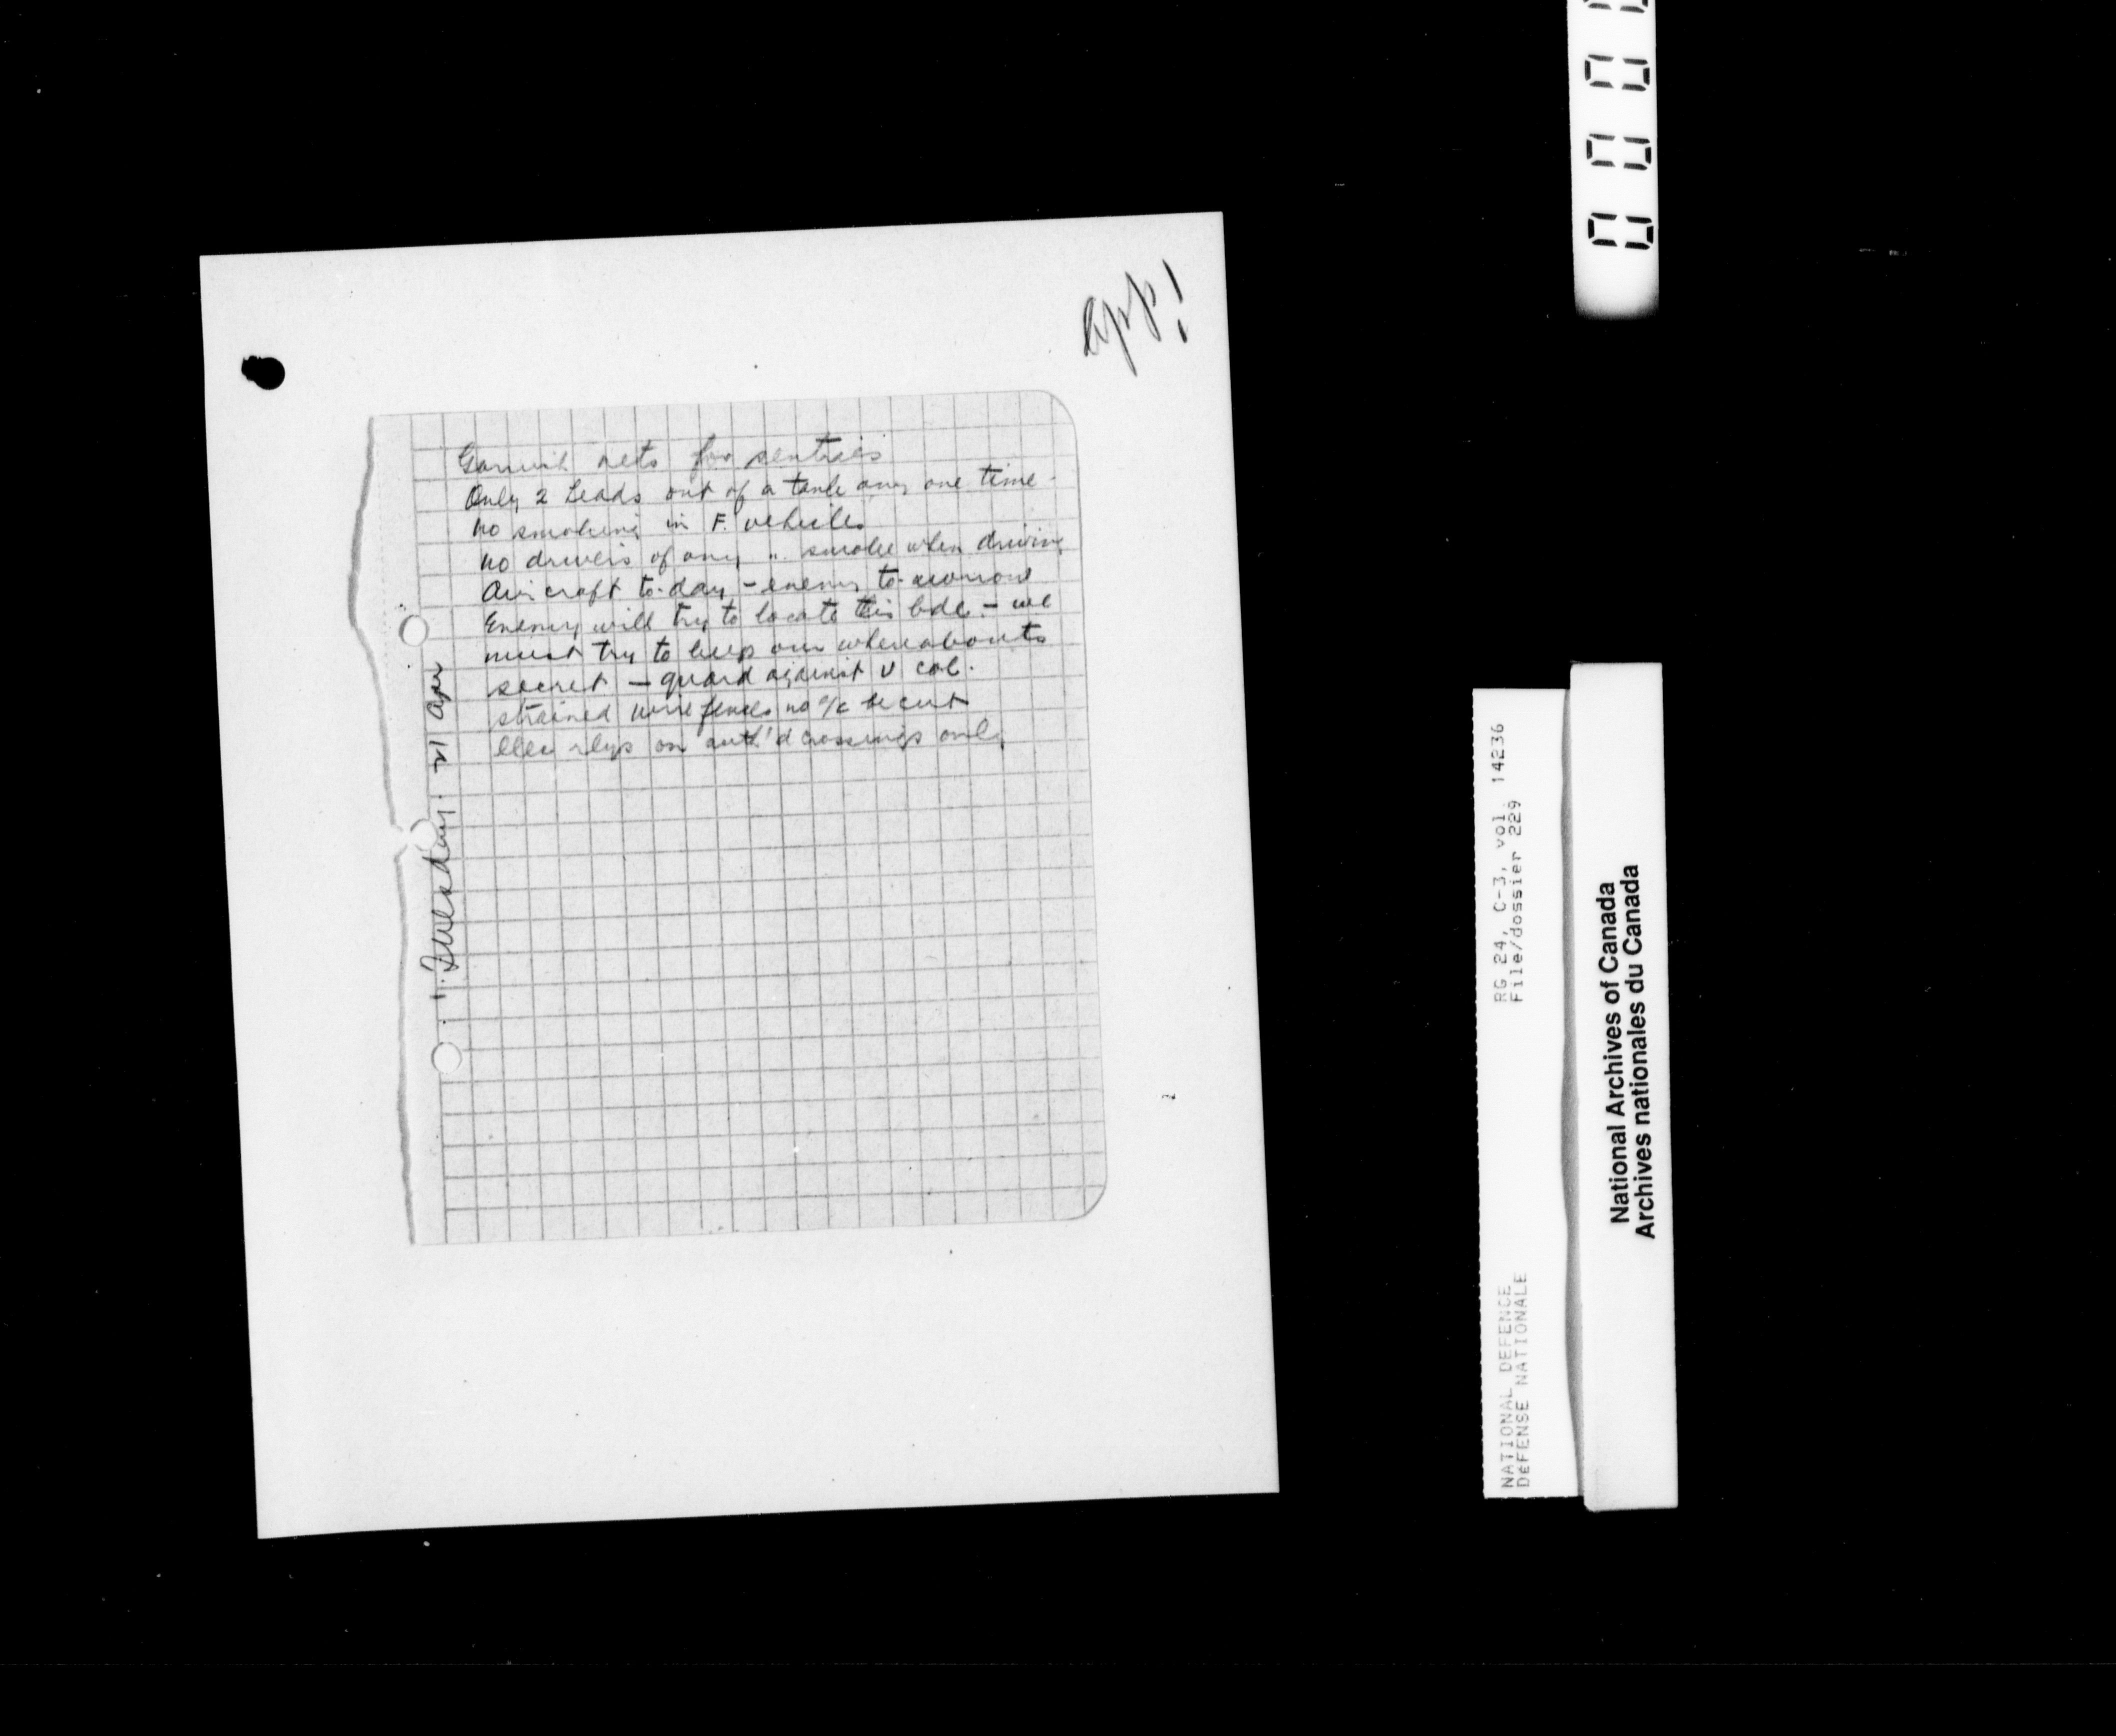 app!
nets for sentries
Only 2 heads out of a tank any one time -
No smoking in F. vehicles
No drivers of any " smoke when driving
Aircraft to-day - enemy to-morrow
Enemy will try to locate this bde - we
must try to keep our whereabouts
secret - guard against V col.
strained wire fences no a/c be cut
rlys on auth'd crossings only
Tuesday. 21 Apr
RG 24, C-3, vol. 14236
File/dossier 229
NATIONAL DEFENCE
DÉFENSE NATIONALE
National Archives of Canada
Archives nationales du Canada